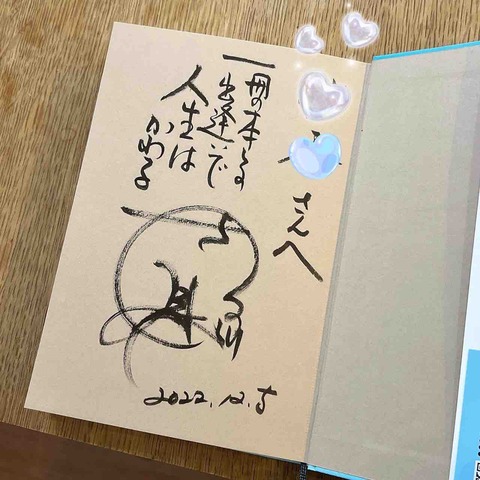 さんへ
一冊の本との
出逢いで
人生は
かわる
2022.12.5